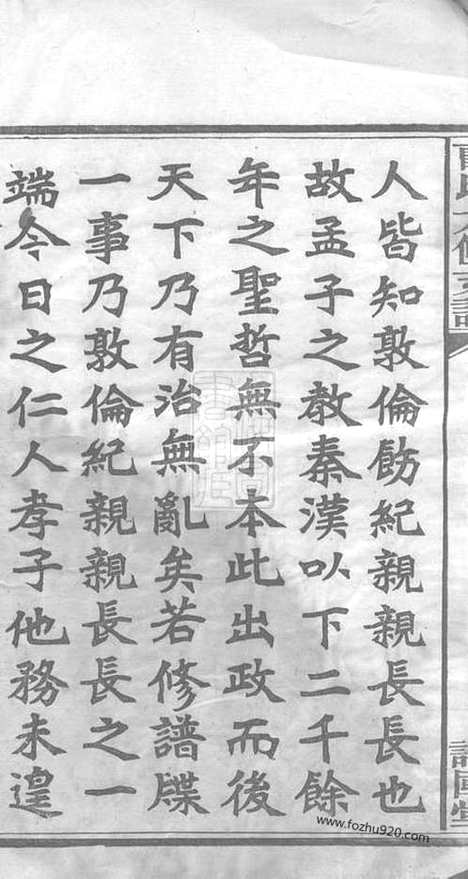 人皆知敦倫飭紀親親長長也
故孟子之教秦漢以下二千餘
年之聖哲無不本此出政而後
天下乃有治無亂矣若修譜牒
一事乃敦倫紀親親長長之一
端今日之仁人孝子他務未遑
www.fozhu920.com